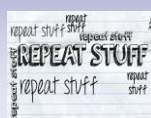 repeat
repeat stuff stuff
repeat stuff
REPEAT STUFF
repeat stuff
repeat stuff
repeat stuff